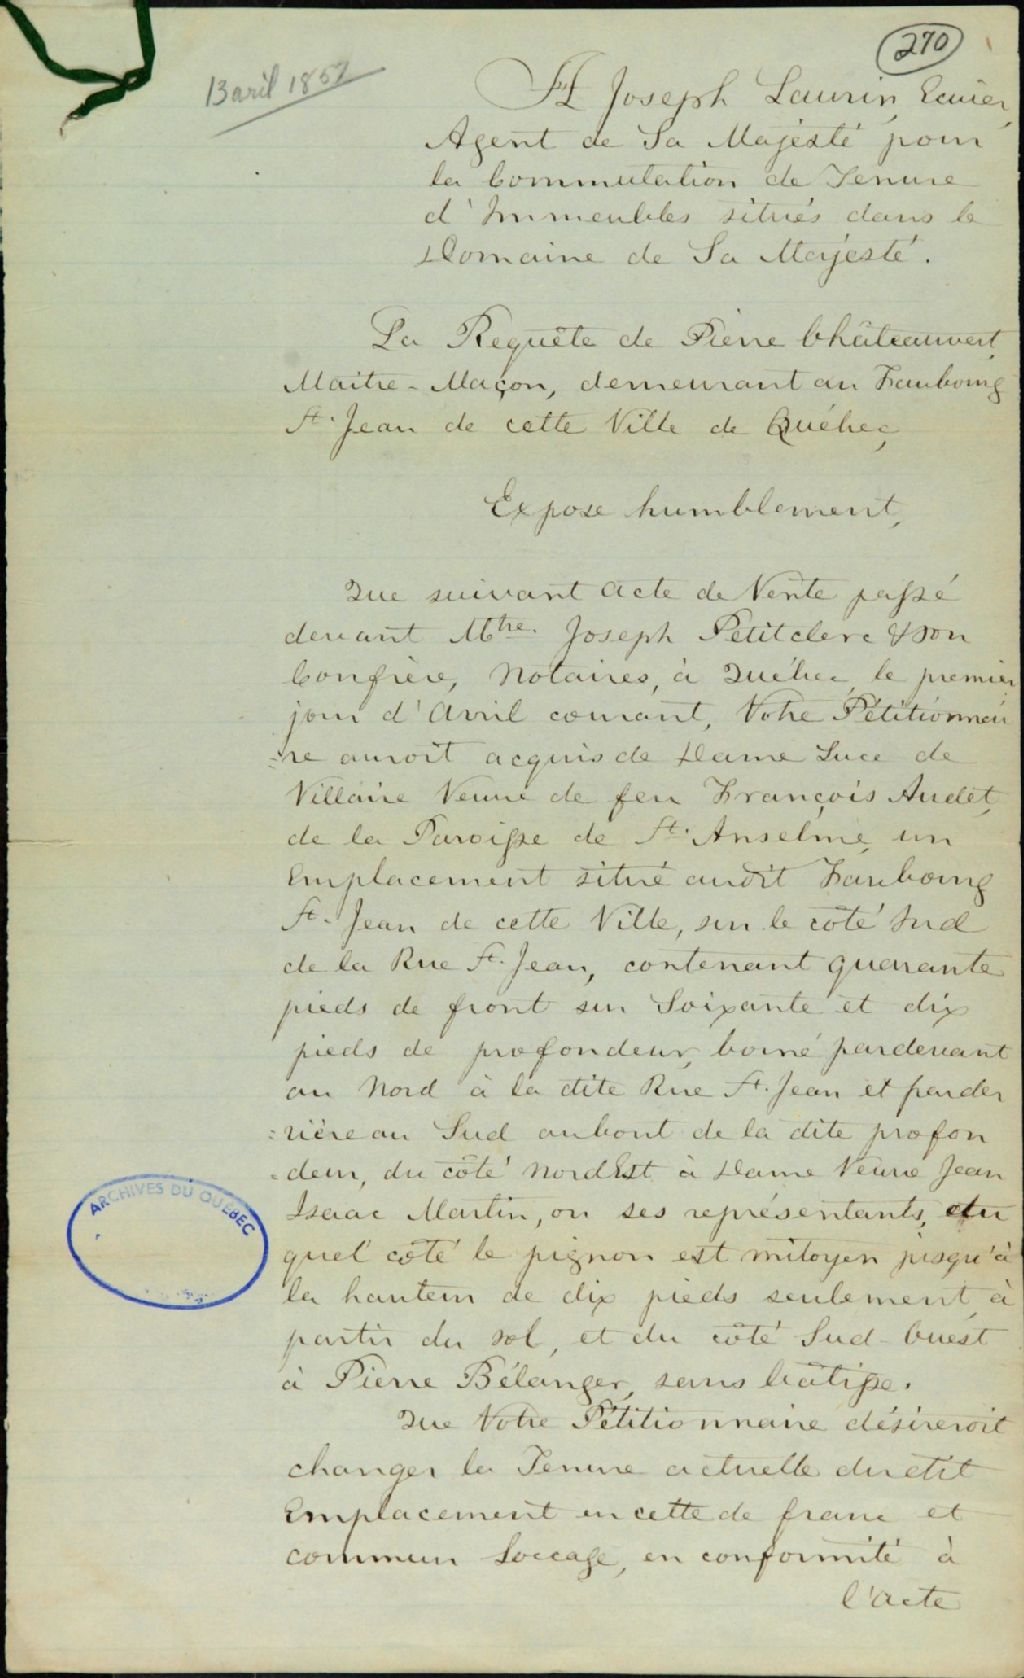 270
13 avril 1857
A Joseph Laurin, Ecuier,
Agent de Sa Majesté pour
la Commutation de Tenure
d'Immeubles situés dans le
Domaine de Sa Majesté.
La Requête de Pierre Châteauvert,
Maitre-Maçon, demeurant au Faubourg
St. Jean de cette Ville de Québec,
Expose humblement,
Que suivant acte de Vente passé
devant Mtre. Joseph Petitclerc & son
Confrère, Notaires, à Québec, le premier
jour d'Avril courant, Votre Pétitionnai
=re auroit acquis de Dame Luce de
Villaire Veuve de feu François Audet,
de la Paroisse de St. Anselme, un
Emplacement situé audit Faubourg
St. Jean de cette Ville, sur le côté Sud
de la Rue St. Jean, contenant quarante
pieds de front sur Soixante et dix
pieds de profondeur, borné pardevant
au Nord à la dite Rue St. Jean et parder
=rière au Sud au bout de la dite profon
=deur, du côté Nord Est à Dame Veuve Jean
Isaac Martin, ou ses représentants, du
quel côté le pignon est mitoyen jusqu'à
la hauteur de dix pieds seulement, à
partir du sol, et du côté Sud-Ouest
à Pierre Bélanger, sans bâtisse.
Que Votre Pétitionnaire désireroit
changer la Tenure actuelle dudit
Emplacement en cette de franc et
commun Soccage, en conformité à
l'acte
ARCHIVES DU QUÉBEC